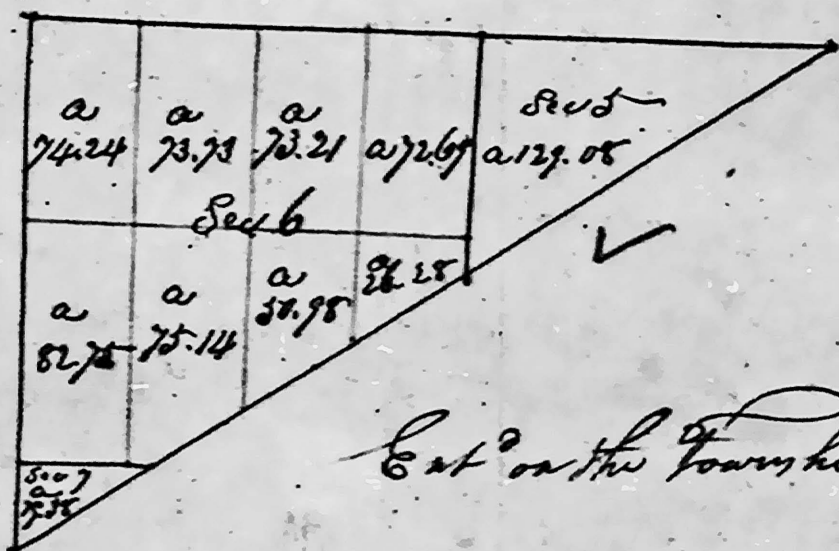 a
74.24
a
73.73
a
73.21
a 72.69
Sec 5
a 129.08
Sec 6
a
82.75
a
75.14
a
50.98
a
26.28
Sec 7
a
Ent^d on the